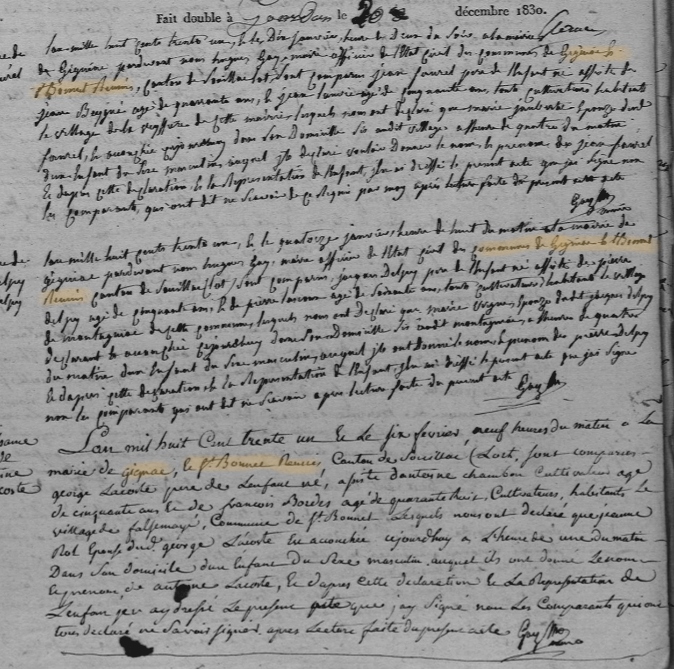 Fait double à Gourdon le 20 décembre 1830.
L'an mille huit cents trente un, & le dix janvier, heure de deux du soir, a la mairie
de Gignac pardevant nous hugues Gay, maire officier de l'état civil des communes de Gignac &
St Bonnet Reunis, Canton de Souillac Lot, sont comparus jean fauril pere de l'enfant né assisté de
jean agé de quarante ans, & jean janvier agé de cinquante ans, tous cultivateurs habitants
le village de la de cette mairie lesquels nous ont declaré que marie epouze dudit
fauril, est accouchée aujourdhuy dans son Domicille sis audit village a heure de quatre du matin
d'un enfant du sexe masculin, auquel ils declaré vouloir donner le nom & prenom de jean fauril
Et dapres cette declaration, & la Representation de l'enfant, jl en a dressé le present acte que jai signé non
les comparants, qui ont dit ne scavoir de ce requis par moy apres lecture faite du present acte
Gay
maire
L'an mille huit cents trente un, & le quatorze janvier, heure de huit du matin a la mairie de
Gignac pardevant nous hugues Gay, maire officier de l'état civil des communes de Gignac & St Bonnet
Reunis Canton de Souillac (Lot) sont comparus, jacques delpuy pere de l'enfant né assisté de pierre
delpuy agé de cinquante ans, & de pierre agé de soixante ans, tous cultivateurs habitants le village
de montagnac de cette commune, lesquels nous ont declaré que marie vergne epouze dudit jacques delpuy
declarant est accouchée aujourdhuy dans son Domicille sis audit montagnac a heure de quatre
du matin d'un enfant du sexe masculin, auquel jls ont donné le nom & prenom de pierre delpuy
Et dapres cette declaration, & la Representation de l'enfant, jl en a dressé le present acte que jai signé
non les comparants qui ont dit ne scavoir apres lecture faite du present acte Gay
L'an mil huit Cent trente un Et Le six fevrier, neuf heures du matin a La
mairie de Gignac, & St Bonnet Reunis, Canton de Souillac (Lot), sont comparus
george Lacoste pere de L'enfant né, assisté d'antoine chambon Cultivateur agé
de cinquante ans & de francois Bordes agé de quarante huit, Cultivateurs, habitants Le
village de falsemoye, Commune de St Bonnet Lesquels nous ont declaré que jeanne
Rol Epouse dudt george Lacoste Est accouchée aujourdhuy a L'heure de une du matin
Dans son domicile d'un Enfant du Sexe masculin auquel ils ont donné Le nom
& prenom, de antoine Lacoste, Et dapres cette declaration & La Representation de
L'enfant j'en ay dressé Le present acte que j'ay signé non Les Comparants qui ont
tous declaré ne Savoir signer, apres Lecture faite du present acte Gay
maire